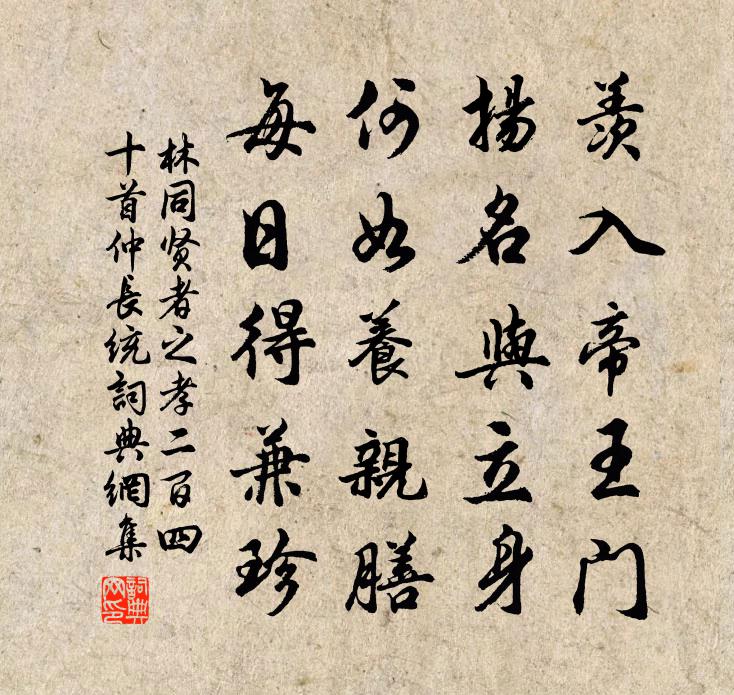 羨入帝王門
揚名與立身
何如養親膳
每日得兼珍
林同賢者之孝二百四
十首仲長統詞典網集
詞典
网印